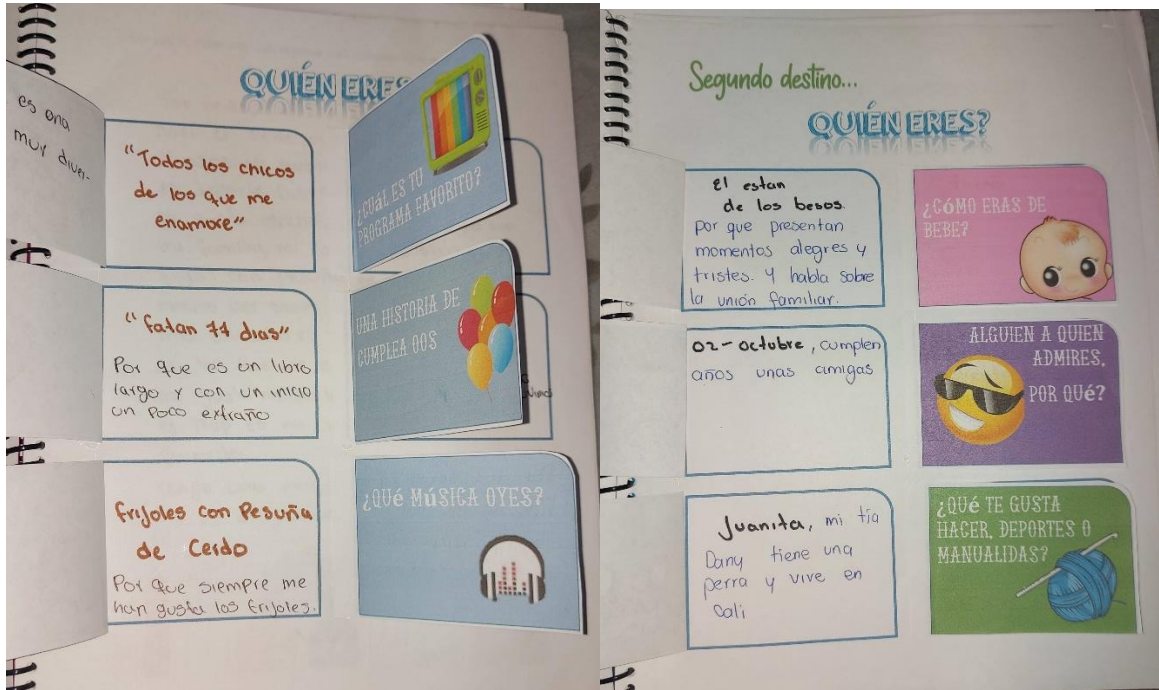 QUIÉN ERES
es ona
muy diver-
"Todos los chicos
de los que me
enamore"
¿CUÁL ES TU
PROGRAMA FAVORITO?
"fatan 77 dias"
Por que es un libro
largo y con un inicio
un poco extraño
UNA HISTORIA DE
CUMPLEA OOS
frijoles con Pesuña
de Cerdo
Por que siempre me
han gusta los frijoles.
¿QUé MúSICA OYES?
Segundo destino...
QUIÉN ERES?
El estan
de los besos.
Por que presentan
momentos alegres y
tristes. Y habla sobre
la unión familiar.
¿CóMO ERAS DE
BEBE?
02-octubre, cumplen
años unas amigas
ALGUIEN A QUIEN
ADMIRES,
POR QUé?
Juanita, mi tía
Dany tiene una
perra y vive en
Cali
¿QUé TE GUSTA
HACER, DEPORTES O
MANUALIDAS?